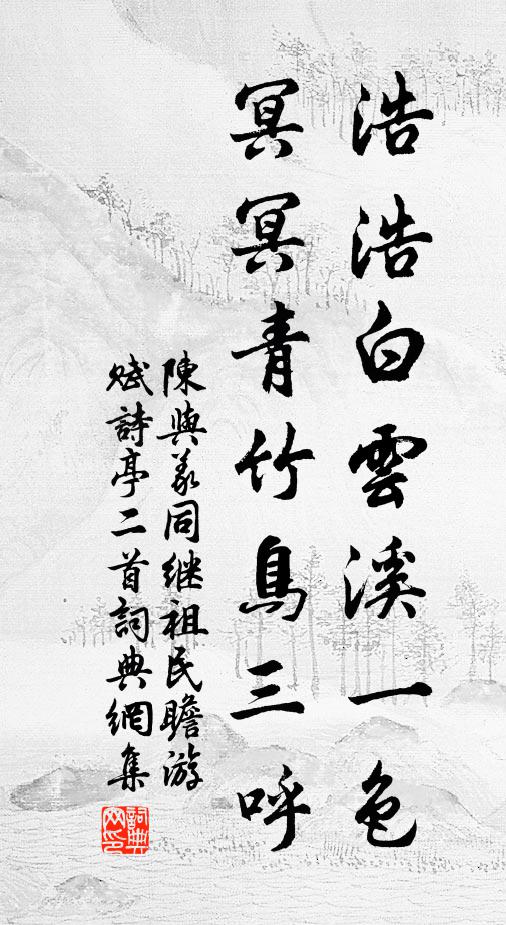 浩浩白雲溪一色
冥冥青竹鳥三呼
陳與義同継祖民瞻游
賦詩亭二首詞典網集
詞典
网印